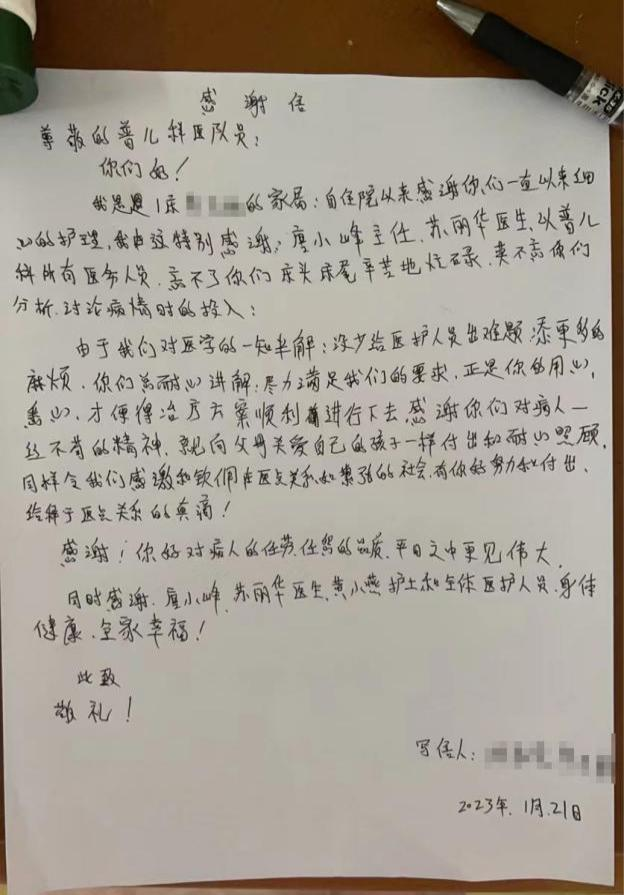 感谢信
尊敬的普儿科医队员：
你们好！
我是是1床的家属：自住院以来感谢你们一直以来细
心的护理，我由这特别感谢：廖小峰主任、苏丽华医生，以普儿
科所有医务人员，忘不了你们床头床尾辛苦地忙碌，莫不忘你们
分析、讨论病情时的投入：
由于我们对医学的一知半解：没少给医护人员出难题，添更多的
麻烦，你们总耐心讲解：尽力满足我们的要求，正是你的用心，
才使得治疗方案顺利着进行下去，感谢你们对病人一
丝不苟的精神，就向父母关爱自己的孩子一样付出和耐心照顾，
同样令我们感激和钦佩在医患关系如紧张的社会，有你好努力和付出，
诠释了医患关系的真谛！
感谢！你好对病人的任劳任怨的品质，平日之中更见伟大，
同时感谢，廖小峰、苏丽华医生，黄小燕护士和全体医护人员，身体
健康，全家幸福！
此致
敬礼！
写信人：
2023年，1月，21日
click